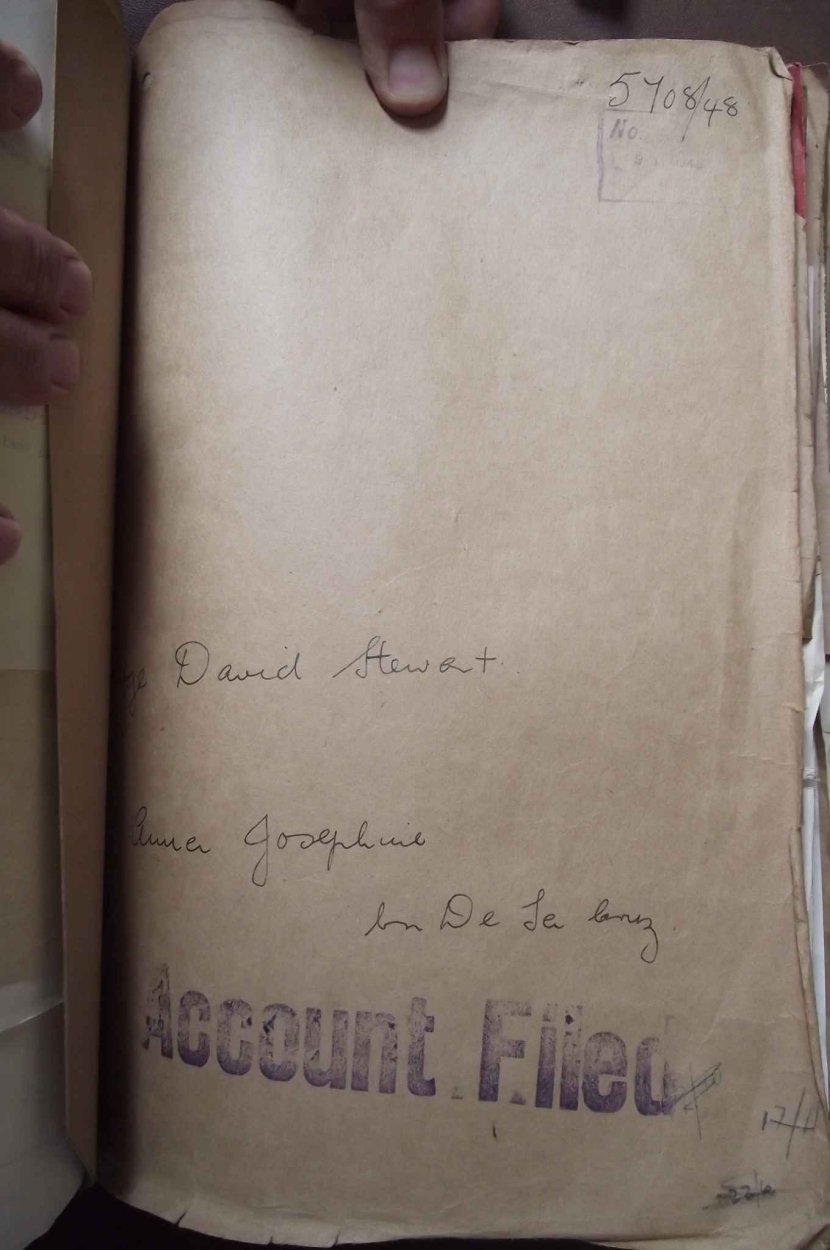 5708/48
No.
David Stewart
Anna Josephine
De La Cruz
Account Filed
17/11